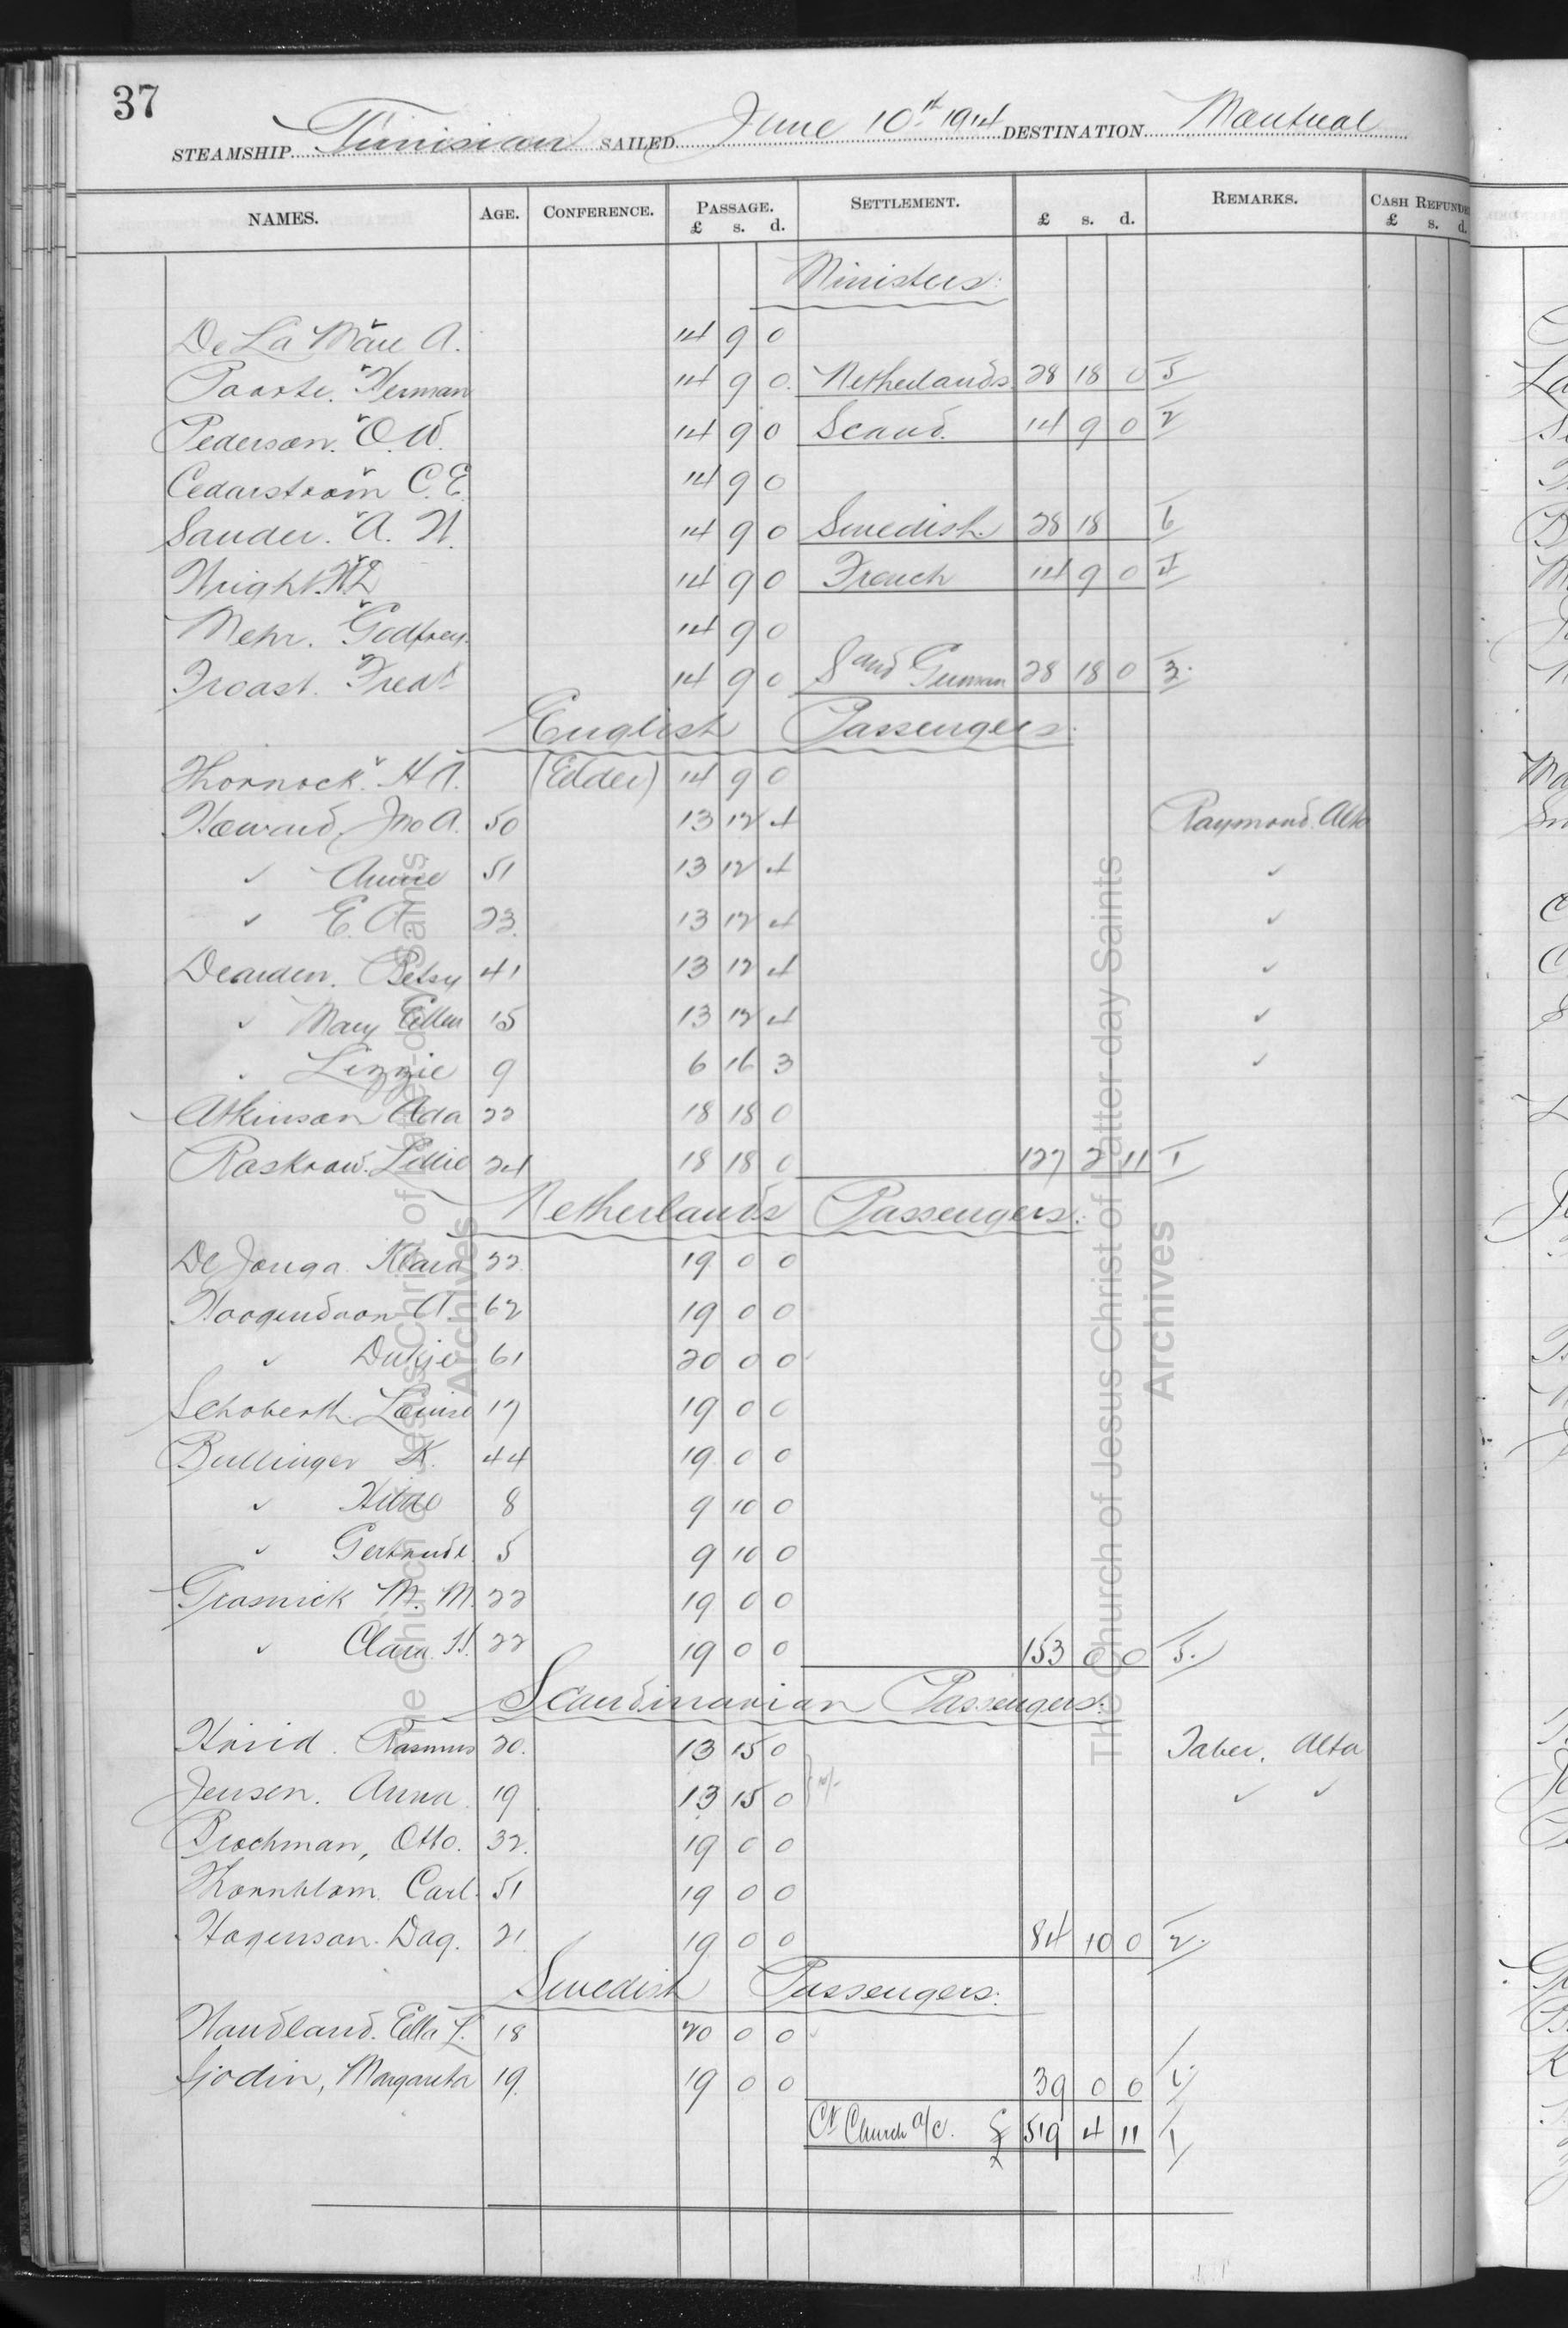 37
STEAMSHIP Tunisian SAILED June 10th 1914 DESTINATION Montreal
NAMES. AGE. CONFERENCE. PASSAGE. £ s. d. SETTLEMENT. £ s. d. REMARKS. CASH REFUNDE £ s. d.
Ministers:
De La Mare A. 14 9 0
Herman 14 9 0 Netherlands 28 18 0 5
Pederson. O. W. 14 9 0 Scand. 14 9 0 2
Cedarstrom C. E. 14 9 0
Sander. A. N. 14 9 0 Swedish. 28 18 6
Wright. 14 9 0 French 14 9 0 4
Mehr. Godfrey. 14 9 0
Froast. Fred. 14 9 0 S and German 28 18 0 3.
English Passengers:
Thornock. H A. (Elder) 14 9 0
Howard, Jno A. 50 13 12 4 Raymond. Alta
" Annie 51 13 12 4 "
" E. A 23. 13 12 4 "
Dearden. Betsy 41 13 12 4 "
" Mary Ellen 15 13 12 4 "
" Lizzie 9 6 16 3 "
Atkinson Ada 22 18 18 0
Raskrow. Lillie 24 18 18 0 127 2 11 1
Netherlands Passengers:
De Jonga Klara 22 19 0 0
Hoogendoorn A 62 19 0 0
" 61 20 0 0
Schoberth Louise 17 19 0 0
Bullinger K. 44 19 0 0
" Hilde 8 9 10 0
" Gertrude 5 9 10 0
Grasnick M. M. 22 19 0 0
" Clara H. 22 19 0 0 153 0 0 5.
Scandinavian Passengers:
Rasmus 20. 13 15 0 Taber. Alta
Jensen. Anna 19 13 15 0 " "
Brochman, Otto. 32. 19 0 0
Thornblom Carl. 51 19 0 0
Hogenson. Dag. 21 19 0 0 84 10 0 2.
Swedish Passengers:
Handland. Ella L. 18 20 0 0
Sjodin, Margareta 19 19 0 0 39 0 0 6
Cr Church a/c. £ 519 4 11 1
The Church of Jesus Christ of Latter-day Saints
Archives
The Church of Jesus Christ of Latter-day Saints
Archives